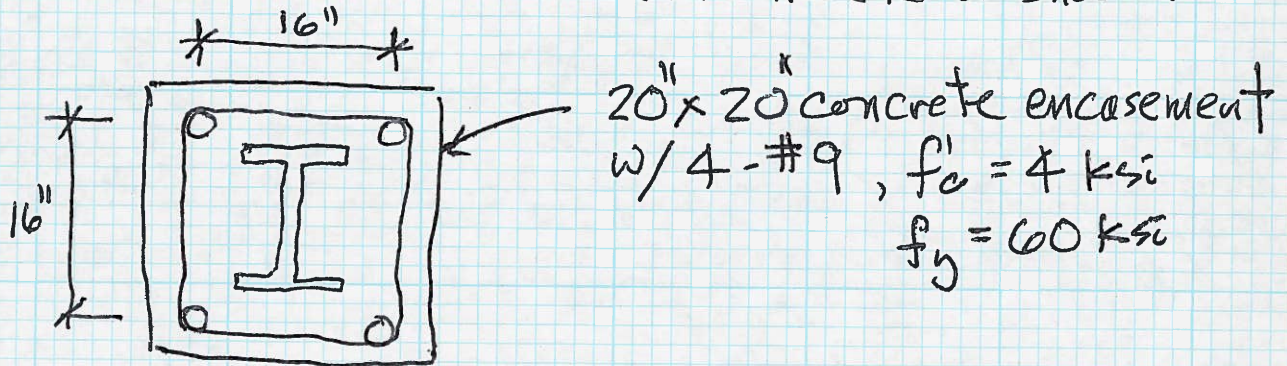 16"
20" x 20" concrete encasement
w/ 4-#9, f'c = 4 ksi
16"
fy = 60 ksi